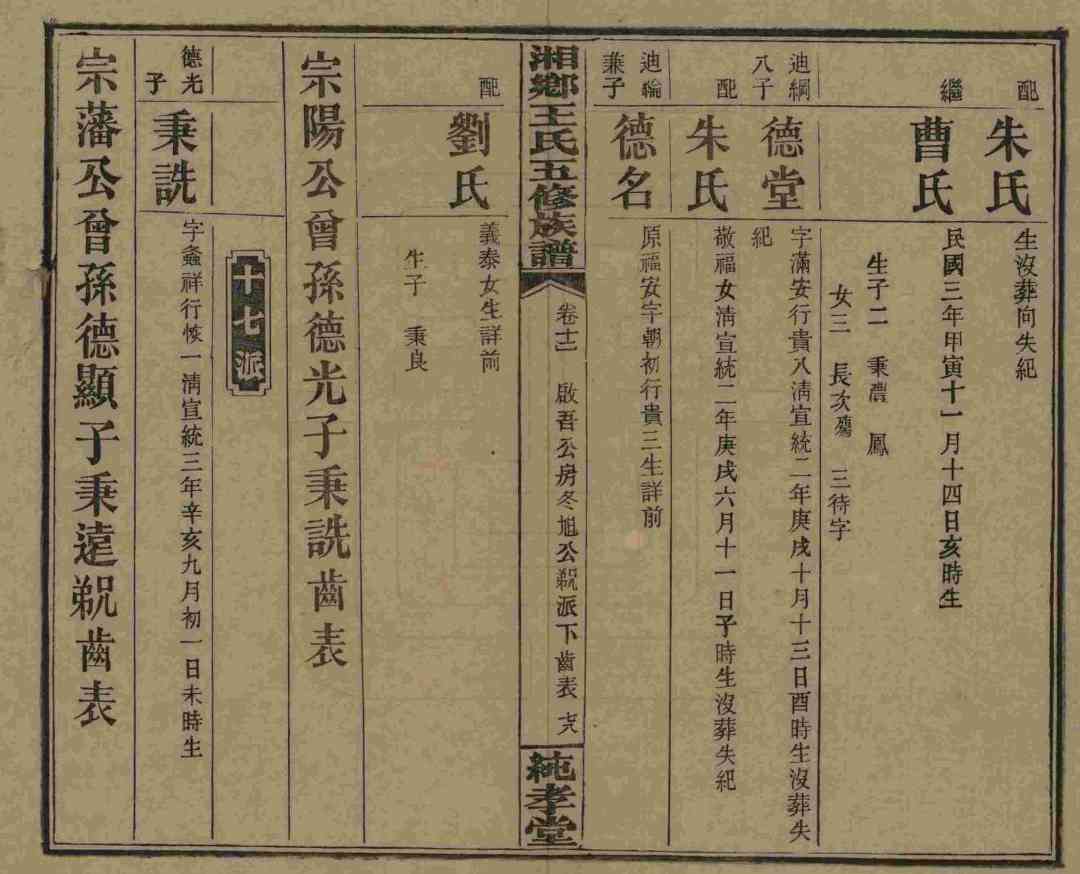 配
朱氏
生沒葬向失紀
繼
曹氏
民國三年甲寅十一月十四日亥時生
生子二 秉農 鳳
女三 長次殤 三待字
迪綱
八子
德堂
字滿安行貴八清宣統二年庚戌十月十三日酉時生沒葬失
紀
配
朱氏
敬福女清宣統二年庚戌六月十一日子時生沒葬失紀
迪綸
兼子
德名
原福安字朝初行貴三生詳前
湘鄉王氏五修族譜
卷十二
啟吾公房冬旭公派下齒表
純孝堂
配
劉氏
義泰女生詳前
生子 秉良
宗陽公曾孫德光子秉詵齒表
十七派
德光
子
秉詵
字螽祥行恢一清宣統三年辛亥九月初一日未時生
宗藩公曾孫德顯子秉遠覡齒表